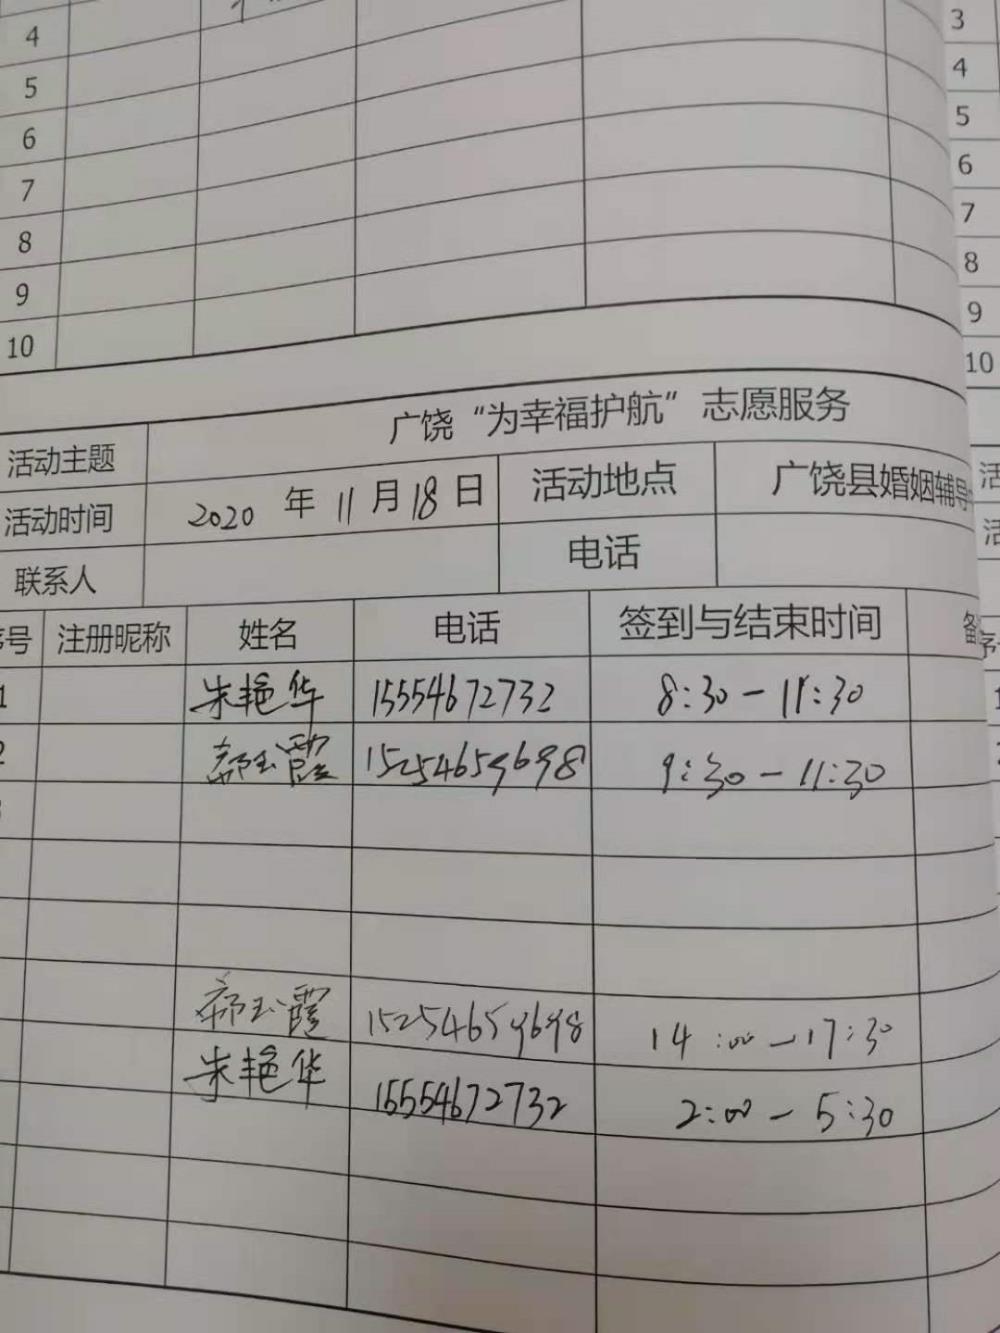 4
5
6
7
8
9
10
3
4
5
6
7
8
9
10
活动主题 广饶“为幸福护航”志愿服务
活动时间 2020年11月18日 活动地点 广饶县婚姻辅导
联系人 电话
序号 注册昵称 姓名 电话 签到与结束时间 备
1 朱艳华 15554672732 8:30-11:30
2 郭玉霞 15254659698 9:30-11:30
郭玉霞 15254659698 14:00-17:30
朱艳华 15554672732 2:00-5:30